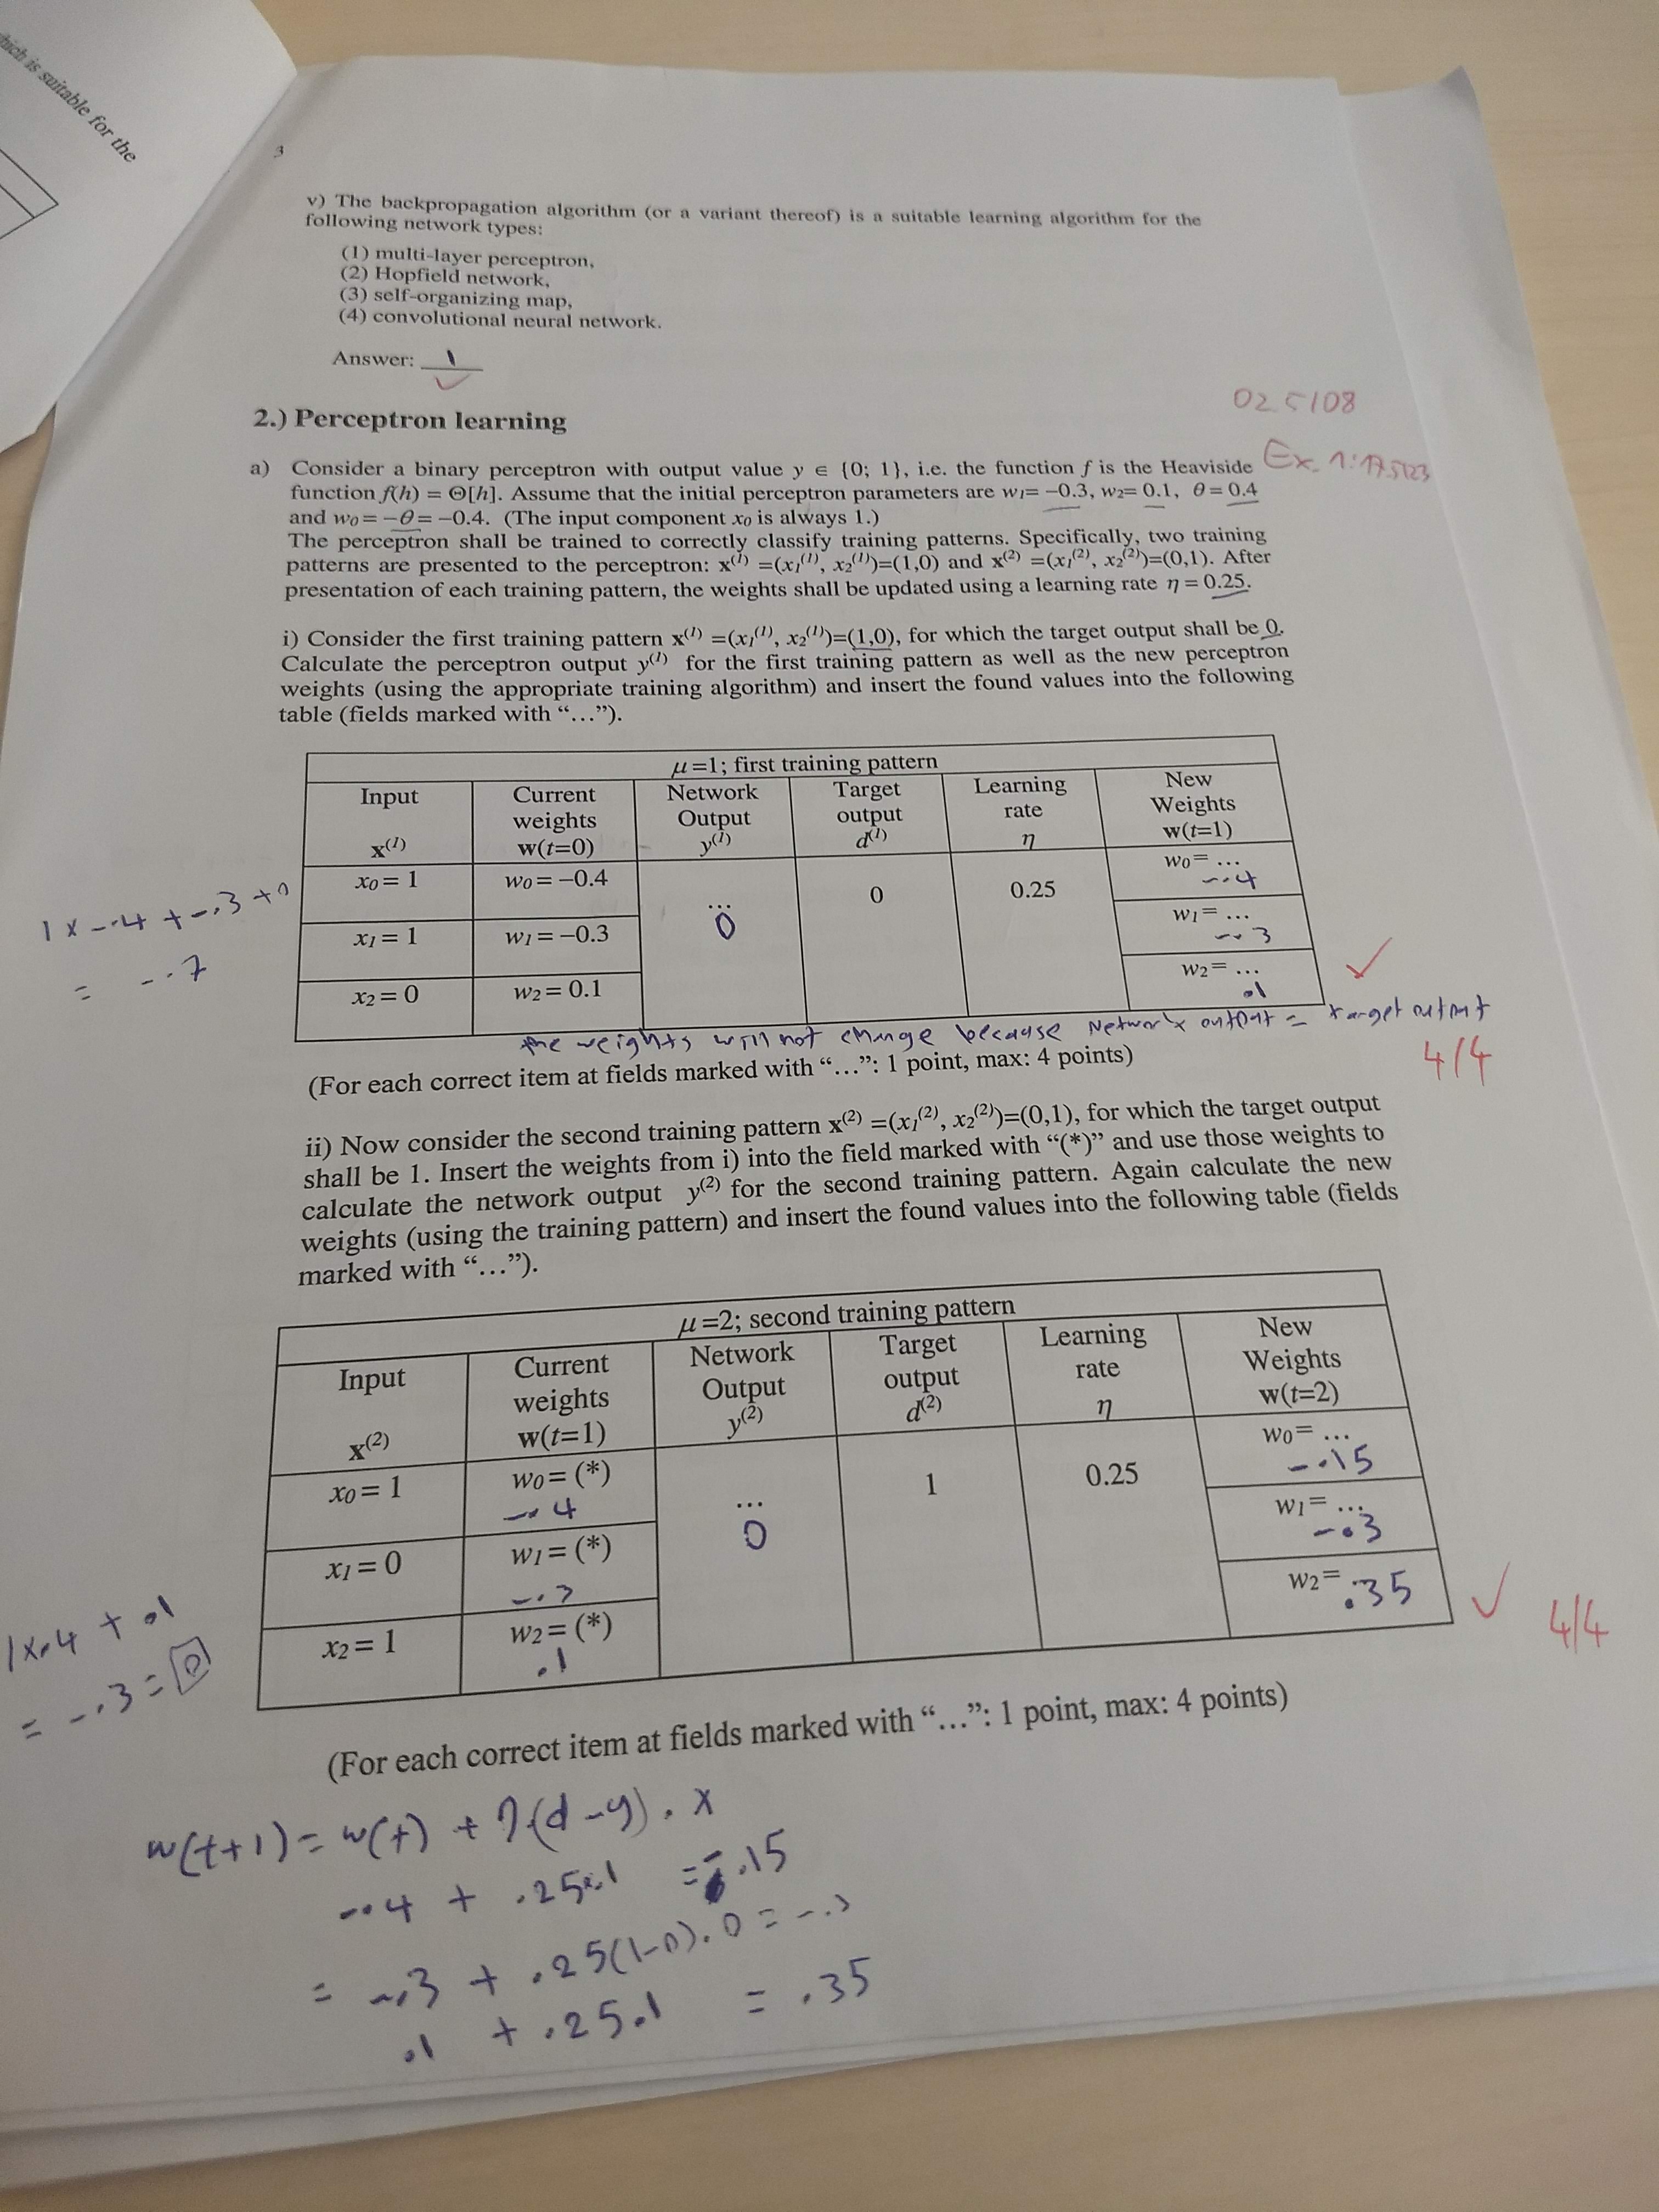 which is suitable for the
3
v) The backpropagation algorithm (or a variant thereof) is a suitable learning algorithm for the
following network types:
(1) multi-layer perceptron,
(2) Hopfield network,
(3) self-organizing map,
(4) convolutional neural network.
Answer: 1
2.) Perceptron learning
a) Consider a binary perceptron with output value y ∈ {0; 1}, i.e. the function f is the Heaviside
function f(h) = Θ[h]. Assume that the initial perceptron parameters are w₁= −0.3, w₂= 0.1, θ = 0.4
and w₀ = −θ = −0.4. (The input component x₀ is always 1.)
The perceptron shall be trained to correctly classify training patterns. Specifically, two training
patterns are presented to the perceptron: x⁽¹⁾ =(x₁⁽¹⁾, x₂⁽¹⁾)=(1,0) and x⁽²⁾ =(x₁⁽²⁾, x₂⁽²⁾)=(0,1). After
presentation of each training pattern, the weights shall be updated using a learning rate η = 0.25.
i) Consider the first training pattern x⁽¹⁾ =(x₁⁽¹⁾, x₂⁽¹⁾)=(1,0), for which the target output shall be 0.
Calculate the perceptron output y⁽¹⁾ for the first training pattern as well as the new perceptron
weights (using the appropriate training algorithm) and insert the found values into the following
table (fields marked with “…”).
μ=1; first training pattern
Input x⁽¹⁾
Current weights w(t=0)
Network Output y⁽¹⁾
Target output d⁽¹⁾
Learning rate η
New Weights w(t=1)
x₀ = 1
w₀ = −0.4
… 0
0
0.25
w₀= … -.4
x₁ = 1
w₁ = −0.3
w₁= … -.3
x₂ = 0
w₂ = 0.1
w₂= … .1
1 x -.4 + -.3 + 0
= -.7
the weights will not change because Network output = target output
4/4
(For each correct item at fields marked with “…”: 1 point, max: 4 points)
ii) Now consider the second training pattern x⁽²⁾ =(x₁⁽²⁾, x₂⁽²⁾)=(0,1), for which the target output
shall be 1. Insert the weights from i) into the field marked with “(*)” and use those weights to
calculate the network output y⁽²⁾ for the second training pattern. Again calculate the new
weights (using the training pattern) and insert the found values into the following table (fields
marked with “…”).
μ=2; second training pattern
Input x⁽²⁾
Current weights w(t=1)
Network Output y⁽²⁾
Target output d⁽²⁾
Learning rate η
New Weights w(t=2)
x₀ = 1
w₀ = (*) -.4
… 0
1
0.25
w₀= … -.15
x₁ = 0
w₁ = (*) -.3
w₁= … -.3
x₂ = 1
w₂ = (*) .1
w₂= .35
1x.4 + .1
= -.3 = 0
4/4
(For each correct item at fields marked with “…”: 1 point, max: 4 points)
w(t+1) = w(t) + η(d-y). x
-.4 + .25.1 = -.15
= -.3 + .25(1-0). 0 = -.3
.1 + .25.1 = .35